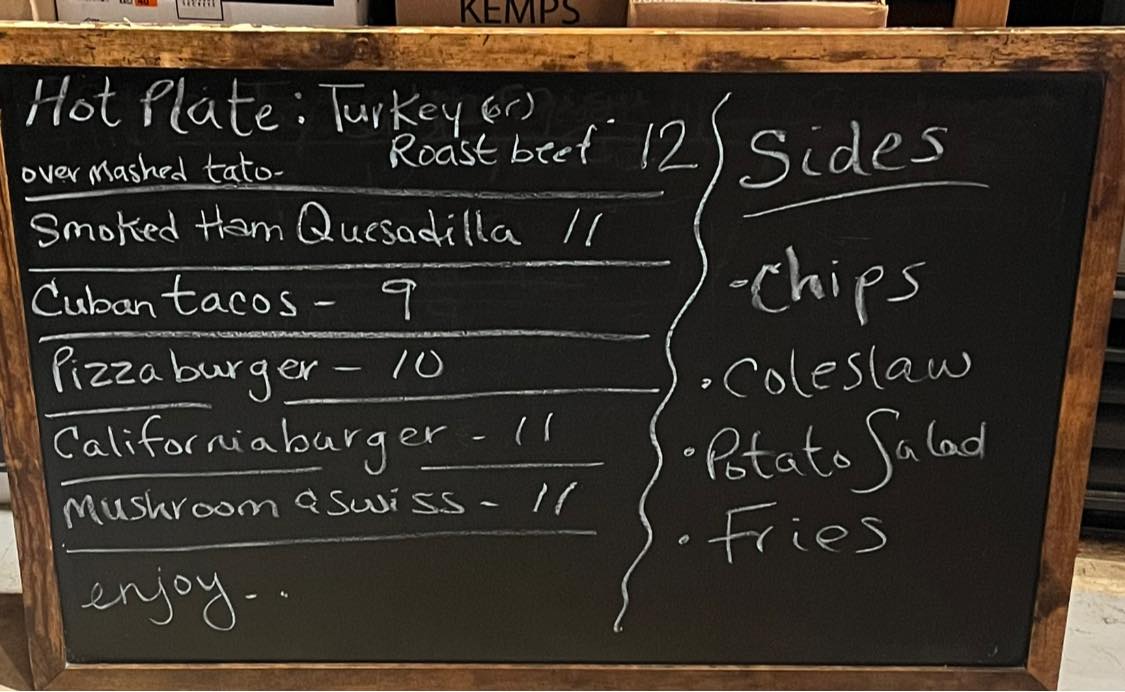 KEMPS
Hot Plate: Turkey (or)
Roast beef 12
over Mashed tato-
Smoked Ham Quesadilla 11
Cuban tacos - 9
Pizza burger - 10
California burger - 11
Mushroom & Swiss - 11
enjoy...
Sides
-Chips
• Coleslaw
• Potato Salad
• Fries